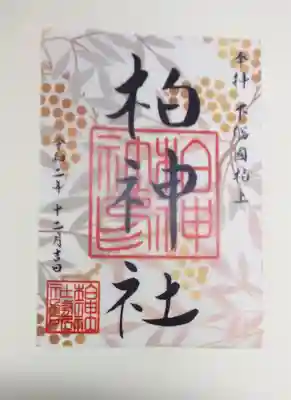 奉拝 下総国柏上
柏神社
令和二年十二月吉日